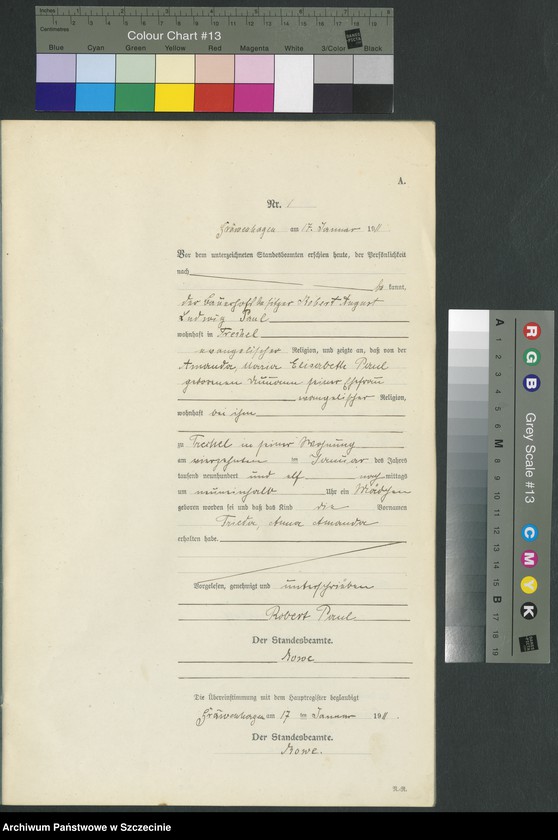 Inches 1 2 3 4 5 6 7 8
Centimetres 1 2 3 4 5 6 7 8 9 10 11 12 13 14 15 16 17 18 19
Colour Chart #13
Blue Cyan Green Yellow Red Magenta White 3/Color Black
A.
Nr. 1
am 17. Januar 191
Vor dem unterzeichneten Standesbeamten erschien heute, der Persönlichkeit
nach
kannt,
der Bauerhofsbesitzer Robert August
Ludwig Paul
wohnhaft in Trechel
evangelischer Religion, und zeigte an, daß von der
Amanda, Maria Elisabeth Paul
geborenen seiner Ehefrau
evangelischer Religion,
wohnhaft bei ihm
zu Trechel in seiner Wohnung
am vierzehnten im Januar des Jahres
tausend neunhundert und elf nachmittags
um neuneinhalb Uhr ein Mädchen
geboren worden sei und daß das Kind die Vornamen
Frieda, Anna Amanda
erhalten habe.
Vorgelesen, genehmigt und unterschrieben
Robert Paul
Der Standesbeamte.
Rowe
Die Übereinstimmung mit dem Hauptregister beglaubigt
am 17 ten Januar 191
Der Standesbeamte.
Rowe.
R.-R.
R G B
Grey Scale #13
C M Y K
A 1 2 3 4 5 6 M 8 9 10 11 12 13 14 15 B 17 18 19
Archiwum Państwowe w Szczecinie